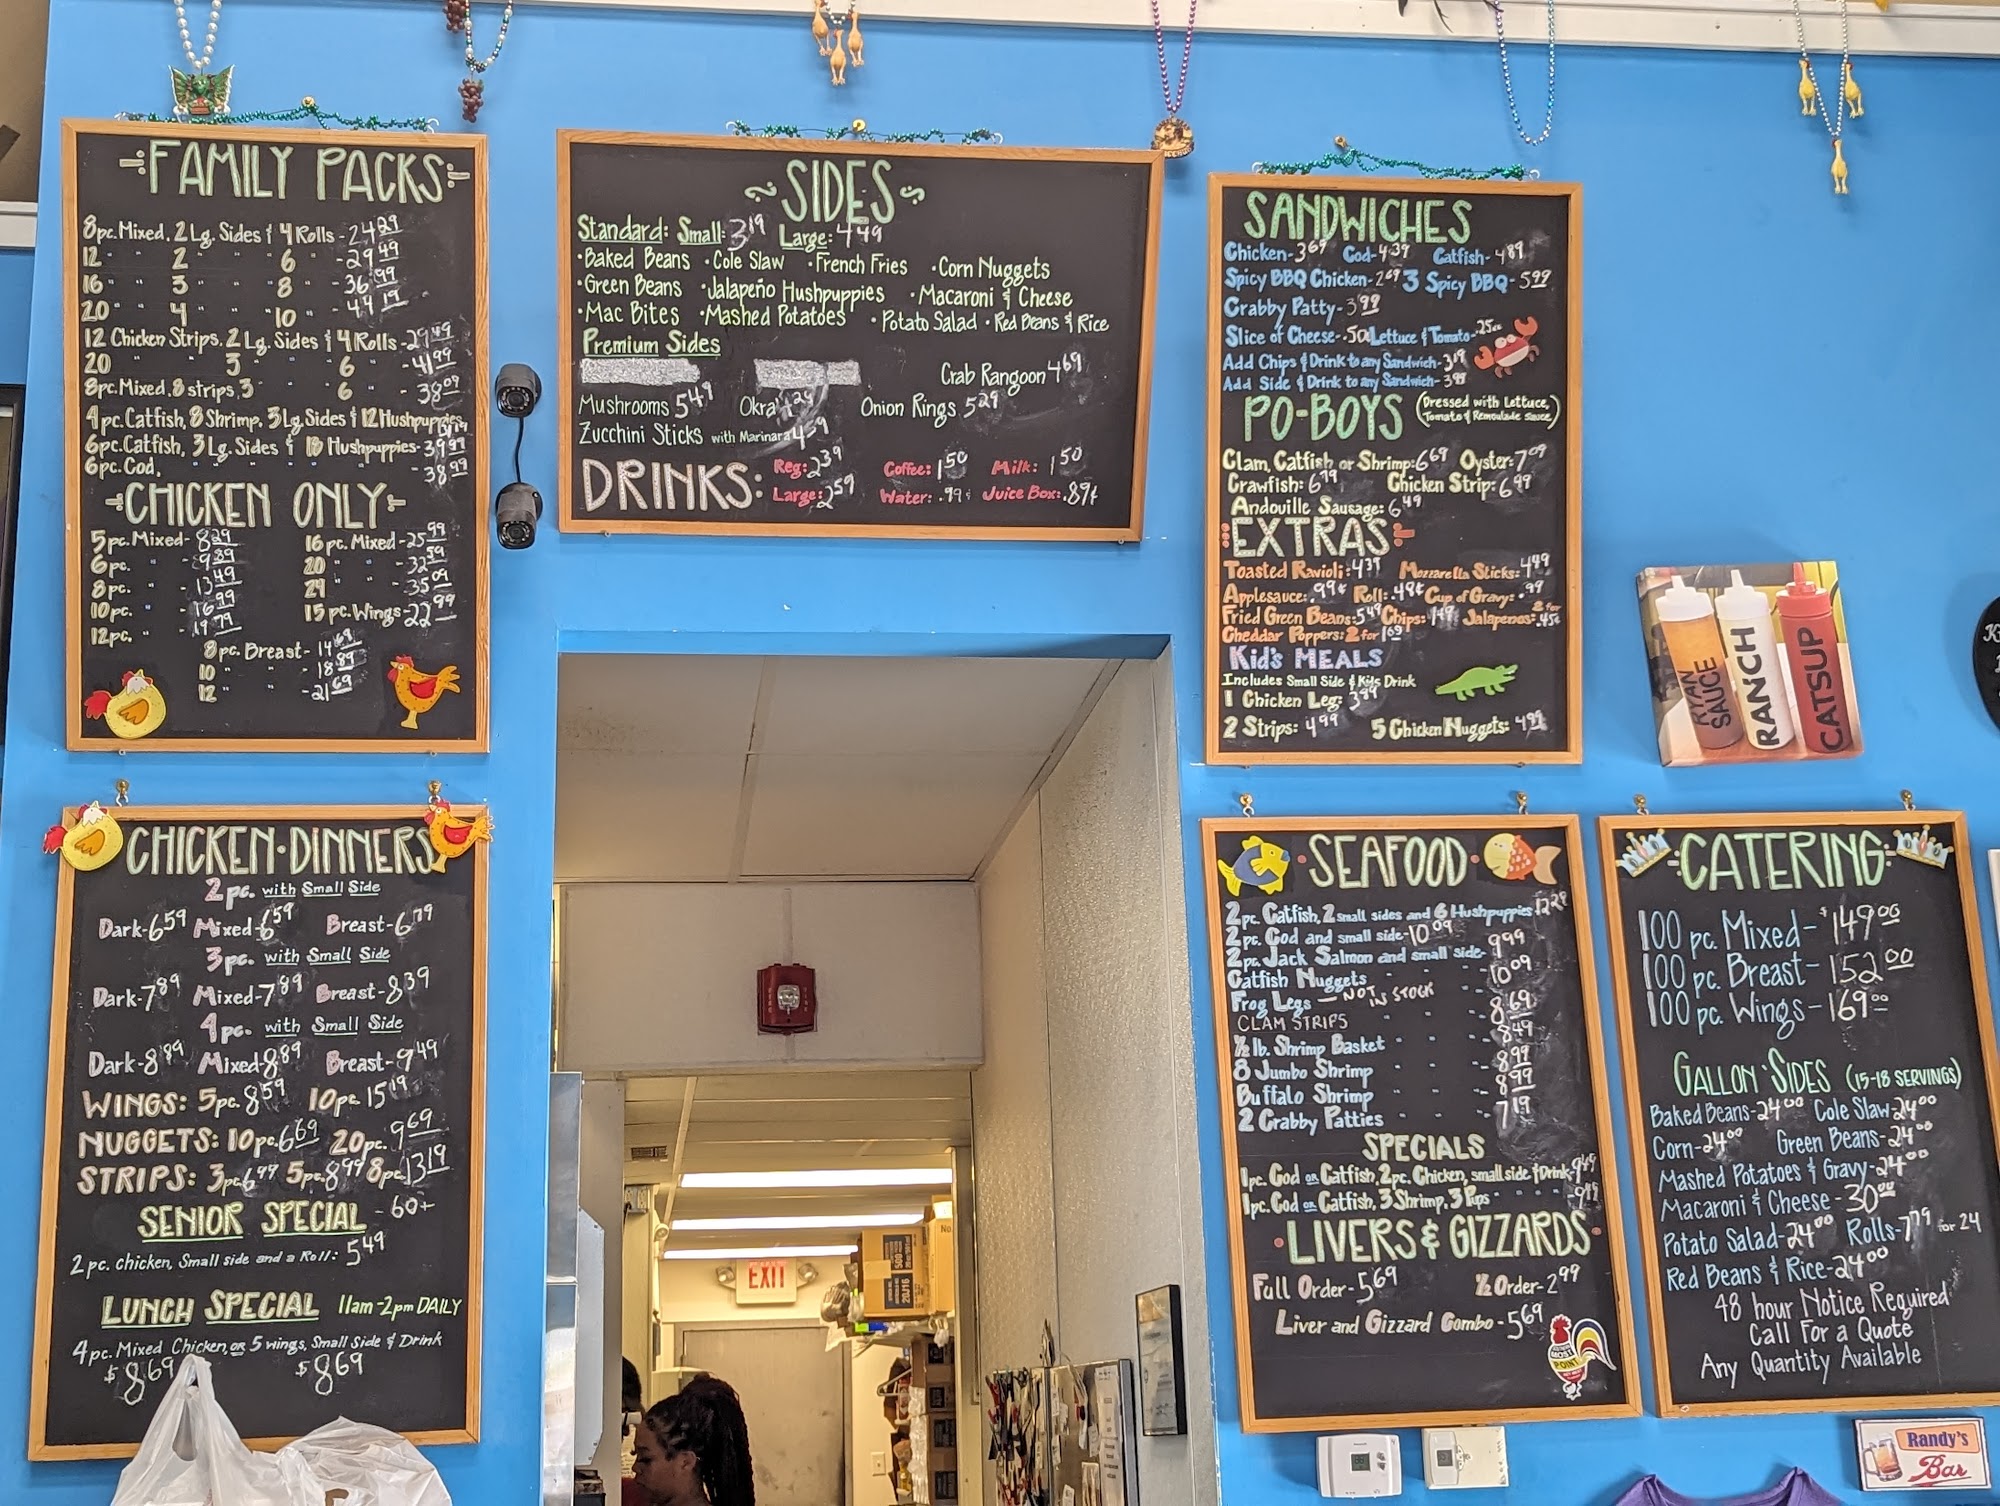 FAMILY PACKS
8pc. Mixed, 2 Lg. Sides & 4 Rolls - 24.29
12 " " 2 " " 6 " - 29.49
16 " " 3 " " 8 " - 36.99
20 " " 4 " " 10 " - 44.19
12 Chicken Strips, 2 Lg. Sides & 4 Rolls - 29.49
20 " " 3 " " 6 " - 41.99
8pc. Mixed, 8 strips, 3 " " 6 " - 38.09
4pc. Catfish, 8 Shrimp, 3 Lg. Sides & 12 Hushpuppies
6pc. Catfish, 3 Lg. Sides & Hushpuppies - 39.99
6pc. Cod, " " " " " - 38.99
CHICKEN ONLY
5pc. Mixed - 8.29
6pc. " - 9.89
8pc. " - 13.49
10pc. " - 16.99
12pc. " - 19.79
16pc. Mixed - 25.99
20 " " - 32.59
24 " " - 35.09
15pc. Wings - 22.99
8pc. Breast - 14.69
10 " " - 18.89
12 " " - 21.69
SIDES
Standard: Small: 3.19 Large: 4.49
• Baked Beans • Cole Slaw • French Fries • Corn Nuggets
• Green Beans • Jalapeño Hushpuppies • Macaroni & Cheese
• Mac Bites • Mashed Potatoes • Potato Salad • Red Beans & Rice
Premium Sides
Crab Rangoon 4.69
Mushrooms 5.49 Okra 4.29 Onion Rings 5.29
Zucchini Sticks with Marinara 4.59
DRINKS:
Reg: 2.39 Coffee: 1.50 Milk: 1.50
Large: 2.59 Water: .99¢ Juice Box: .89¢
SANDWICHES
Chicken - 3.69 Cod - 4.39 Catfish - 4.89
Spicy BBQ Chicken - 2.69 3 Spicy BBQ - 5.99
Crabby Patty - 3.99
Slice of Cheese - .50 Lettuce & Tomato - .25
Add Chips & Drink to any Sandwich - 3.19
Add Side & Drink to any Sandwich - 3.99
PO-BOYS (Dressed with Lettuce, Tomato & Remoulade Sauce)
Clam, Catfish or Shrimp: 6.69 Oyster: 7.09
Crawfish: 6.79 Chicken Strip: 6.99
Andouille Sausage: 6.49
EXTRAS
Toasted Ravioli: 4.39 Mozzarella Sticks: 4.49
Applesauce: .99¢ Roll: .48¢ Cup of Gravy: .99
Fried Green Beans: 5.49 Chips: 1.49 Jalapenos: 2 for .45¢
Cheddar Poppers: 2 for 1.69
Kid's MEALS
Includes Small Side & Kids Drink
1 Chicken Leg: 3.99
2 Strips: 4.99 5 Chicken Nuggets: 4.99
RYAN SAUCE
RANCH
CATSUP
CHICKEN • DINNERS
2pc. with Small Side
Dark - 6.59 Mixed - 6.59 Breast - 6.79
3pc. with Small Side
Dark - 7.89 Mixed - 7.89 Breast - 8.39
4pc. with Small Side
Dark - 8.89 Mixed - 8.89 Breast - 9.49
WINGS: 5pc. 8.59 10pc. 15.19
NUGGETS: 10pc. 6.69 20pc. 9.69
STRIPS: 3pc. 6.99 5pc. 8.99 8pc. 13.19
SENIOR SPECIAL - 60+
2 pc. chicken, Small side and a Roll: 5.49
LUNCH SPECIAL 11am - 2pm DAILY
4pc. Mixed Chicken, or 5 wings, Small Side & Drink
$8.69 $8.69
EXIT
SEAFOOD
2pc. Catfish, 2 small sides and 6 Hushpuppies 12.29
2pc. Cod and small side - 10.09
2pc. Jack Salmon and small side - 9.99
Catfish Nuggets " " 10.09
Frog Legs — NOT IN STOCK
CLAM STRIPS " " 8.69
½ lb. Shrimp Basket " " 8.49
8 Jumbo Shrimp " " 8.99
Buffalo Shrimp " " 8.99
2 Crabby Patties " " 7.19
SPECIALS
1pc. Cod or Catfish, 2pc. Chicken, small side & Drink - 9.49
1pc. Cod or Catfish, 3 Shrimp, 3 Pups " " - 9.99
LIVERS & GIZZARDS
Full Order - 5.69 ½ Order - 2.99
Liver and Gizzard Combo - 5.69
CATERING
100 pc. Mixed - $149.00
100 pc. Breast - 152.00
100 pc. Wings - 169.00
GALLON SIDES (15-18 SERVINGS)
Baked Beans - 24.00 Cole Slaw - 24.00
Corn - 24.00 Green Beans - 24.00
Mashed Potatoes & Gravy - 24.00
Macaroni & Cheese - 30.00
Potato Salad - 24.00 Rolls - 7.79 for 24
Red Beans & Rice - 24.00
48 hour Notice Required
Call For a Quote
Any Quantity Available
Randy's
Bar